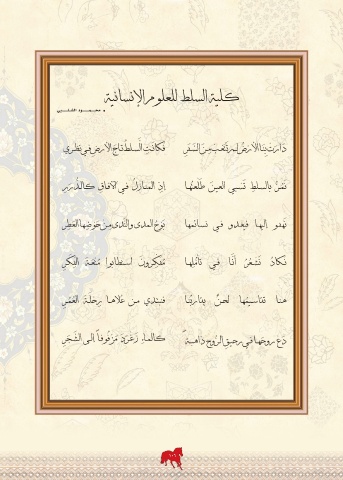 كلية السلط للعلوم الإنسانية
د. محمود الشلبي
دارت بنا الأرض لم تتعب من السفر فكانت السلط تاج الأرض في نظري
نمر بالسلط تسبي العين طلعتها إذ المنازل في الآفاق كالدرر
تهدو إلها فيغدو في نسائمها بوح المدى والندى من حوضها العطر
نكاد نشعر أنا في تأملها مفكرون استطابوا متعة الفكر
هنا تقاسيمها لحن يقاربنا فنبتدي من علاها رحلة العمر
دع روحها في رحيق الروح ذاهبة كالماء زغرد مزفوفاً إلى الشجر